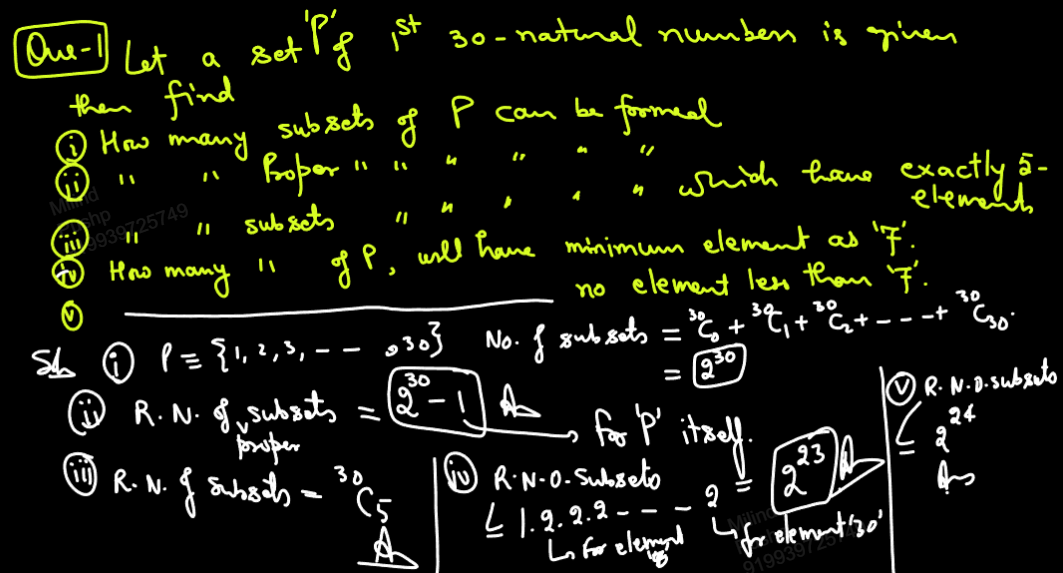 Que-1 Let a set 'P' of 1st 30-natural numbers is given
then find
(i) How many subsets of P can be formed
(ii) " " Proper " " " " " "
(iii) " " subsets " " " " " which have exactly 5-elements
(iv) How many " of P, will have minimum element as '7'.
(v) ———————— no element less than '7'.
Sol (i) P ≡ {1, 2, 3, - - - , 30} No. of subsets = ³⁰C₀ + ³⁰C₁ + ³⁰C₂ + - - - + ³⁰C₃₀.
= 2³⁰
(ii) R.N. of proper subsets = 2³⁰ - 1 A → for 'P' itself.
(iii) R.N. of subsets = ³⁰C₅
A
(iv) R.N.O. Subsets = 2²³ A
1.2.2.2 - - - - 2
↳ for element '8' ↳ for element '30'
(v) R.N.O. subsets
2²⁴
Ans
Milind
9939725749
Milind
919939725749